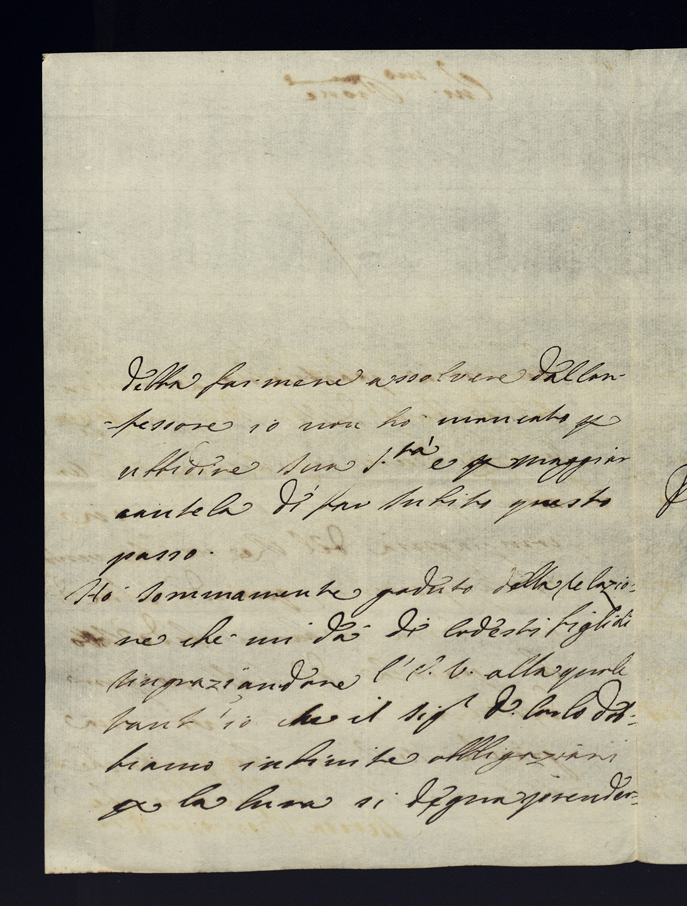 della farmene assolvere dal con-
-fessore io non ho mancato p
ubbidire Sua S.tà e p maggior
cautela di far subito questo
passo.
Ho sommamente goduto della relazio-
ne che mi dà di codesti figli di
ringraziandone l'E. V. alla quale
tant'io che il sigr D. Carlo dob-
biamo infinite obbligazioni
p la cura si degna prender-